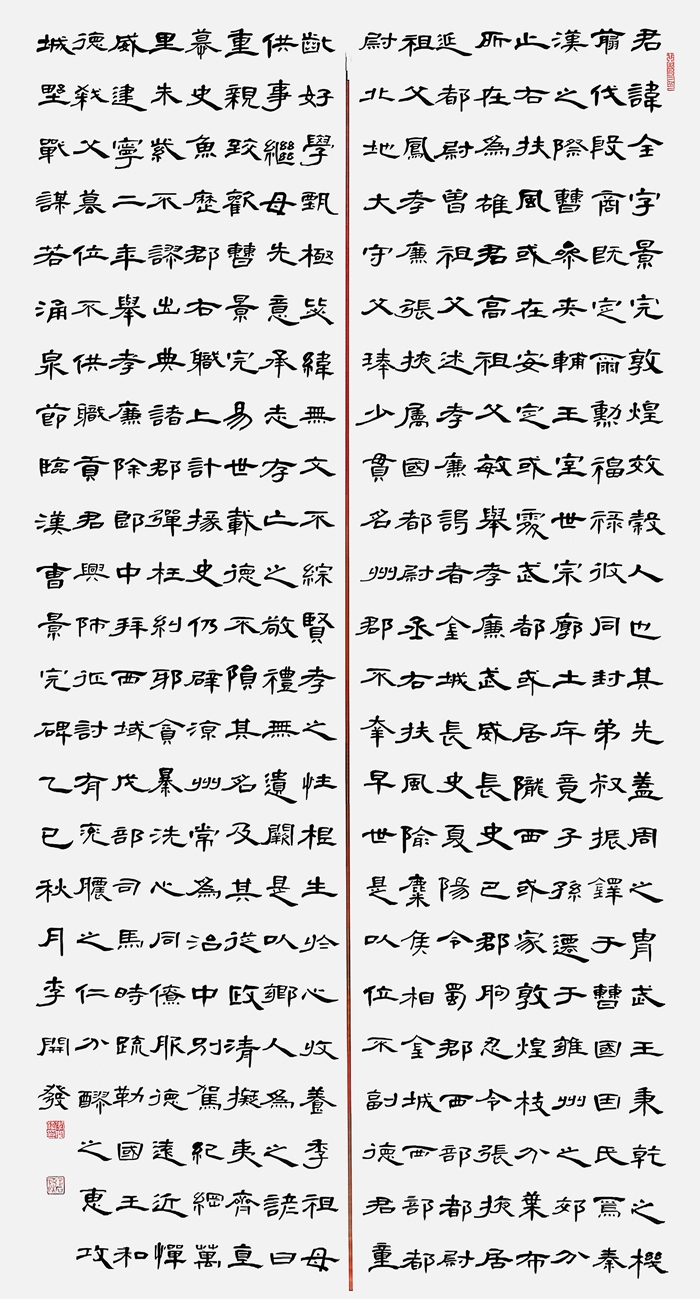 君諱全字景完敦煌效穀人也其先蓋周之胄武王秉乾之機
翦伐殷商既定爾勳福祿攸同封弟叔振鐸于曹國因氏焉秦
漢之際曹參夾輔王室世宗廓土斥竟子孫遷于雍州之郊分
止右扶風或在安定或處武都或居隴西或家敦煌枝分葉布
所在為雄君高祖父敏舉孝廉武威長史巴郡朐忍令張掖居
延都尉曾祖父述孝廉謁者金城長史夏陽令蜀郡西部都尉
祖父鳳孝廉張掖屬國都尉丞右扶風隃麋侯相金城西部都
尉北地大守父琫少貫名州郡不幸早世是以位不副德君童
齔好學甄極毖緯無文不綜賢孝之性根生於心收養季祖母
供事繼母先意承志存亡之敬禮無遺闕是以鄉人為之諺曰
重親致歡曹景完易世載德不隕其名及其從政清擬夷齊直
慕史魚歷郡右職上計掾史仍辟涼州常為治中別駕紀綱萬
里朱紫不謬出典諸郡彈枉糾邪貪暴洗心同僚服德遠近憚
威建寧二年舉孝廉除郎中拜西域戊部司馬時疏勒國王和
德弒父篡位不供職貢君興師征討有兗膿之仁分醪之惠攻
城野戰謀若涌泉節臨漢曹景完碑乙巳秋月李開發